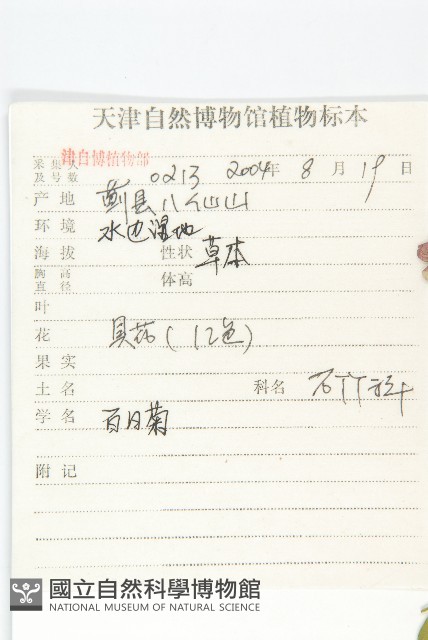 天津自然博物馆植物标本
采集人
及号数 津自博植物部 0213 2004年 8 月 19 日
产地 蓟县八仙山
环境 水边湿地
海拔 性状 草本
胸高
直径 体高
叶
花 具花(红色)
果实
土名 科名 石竹科
学名 百日菊
附记
國立自然科學博物館
NATIONAL MUSEUM OF NATURAL SCIENCE